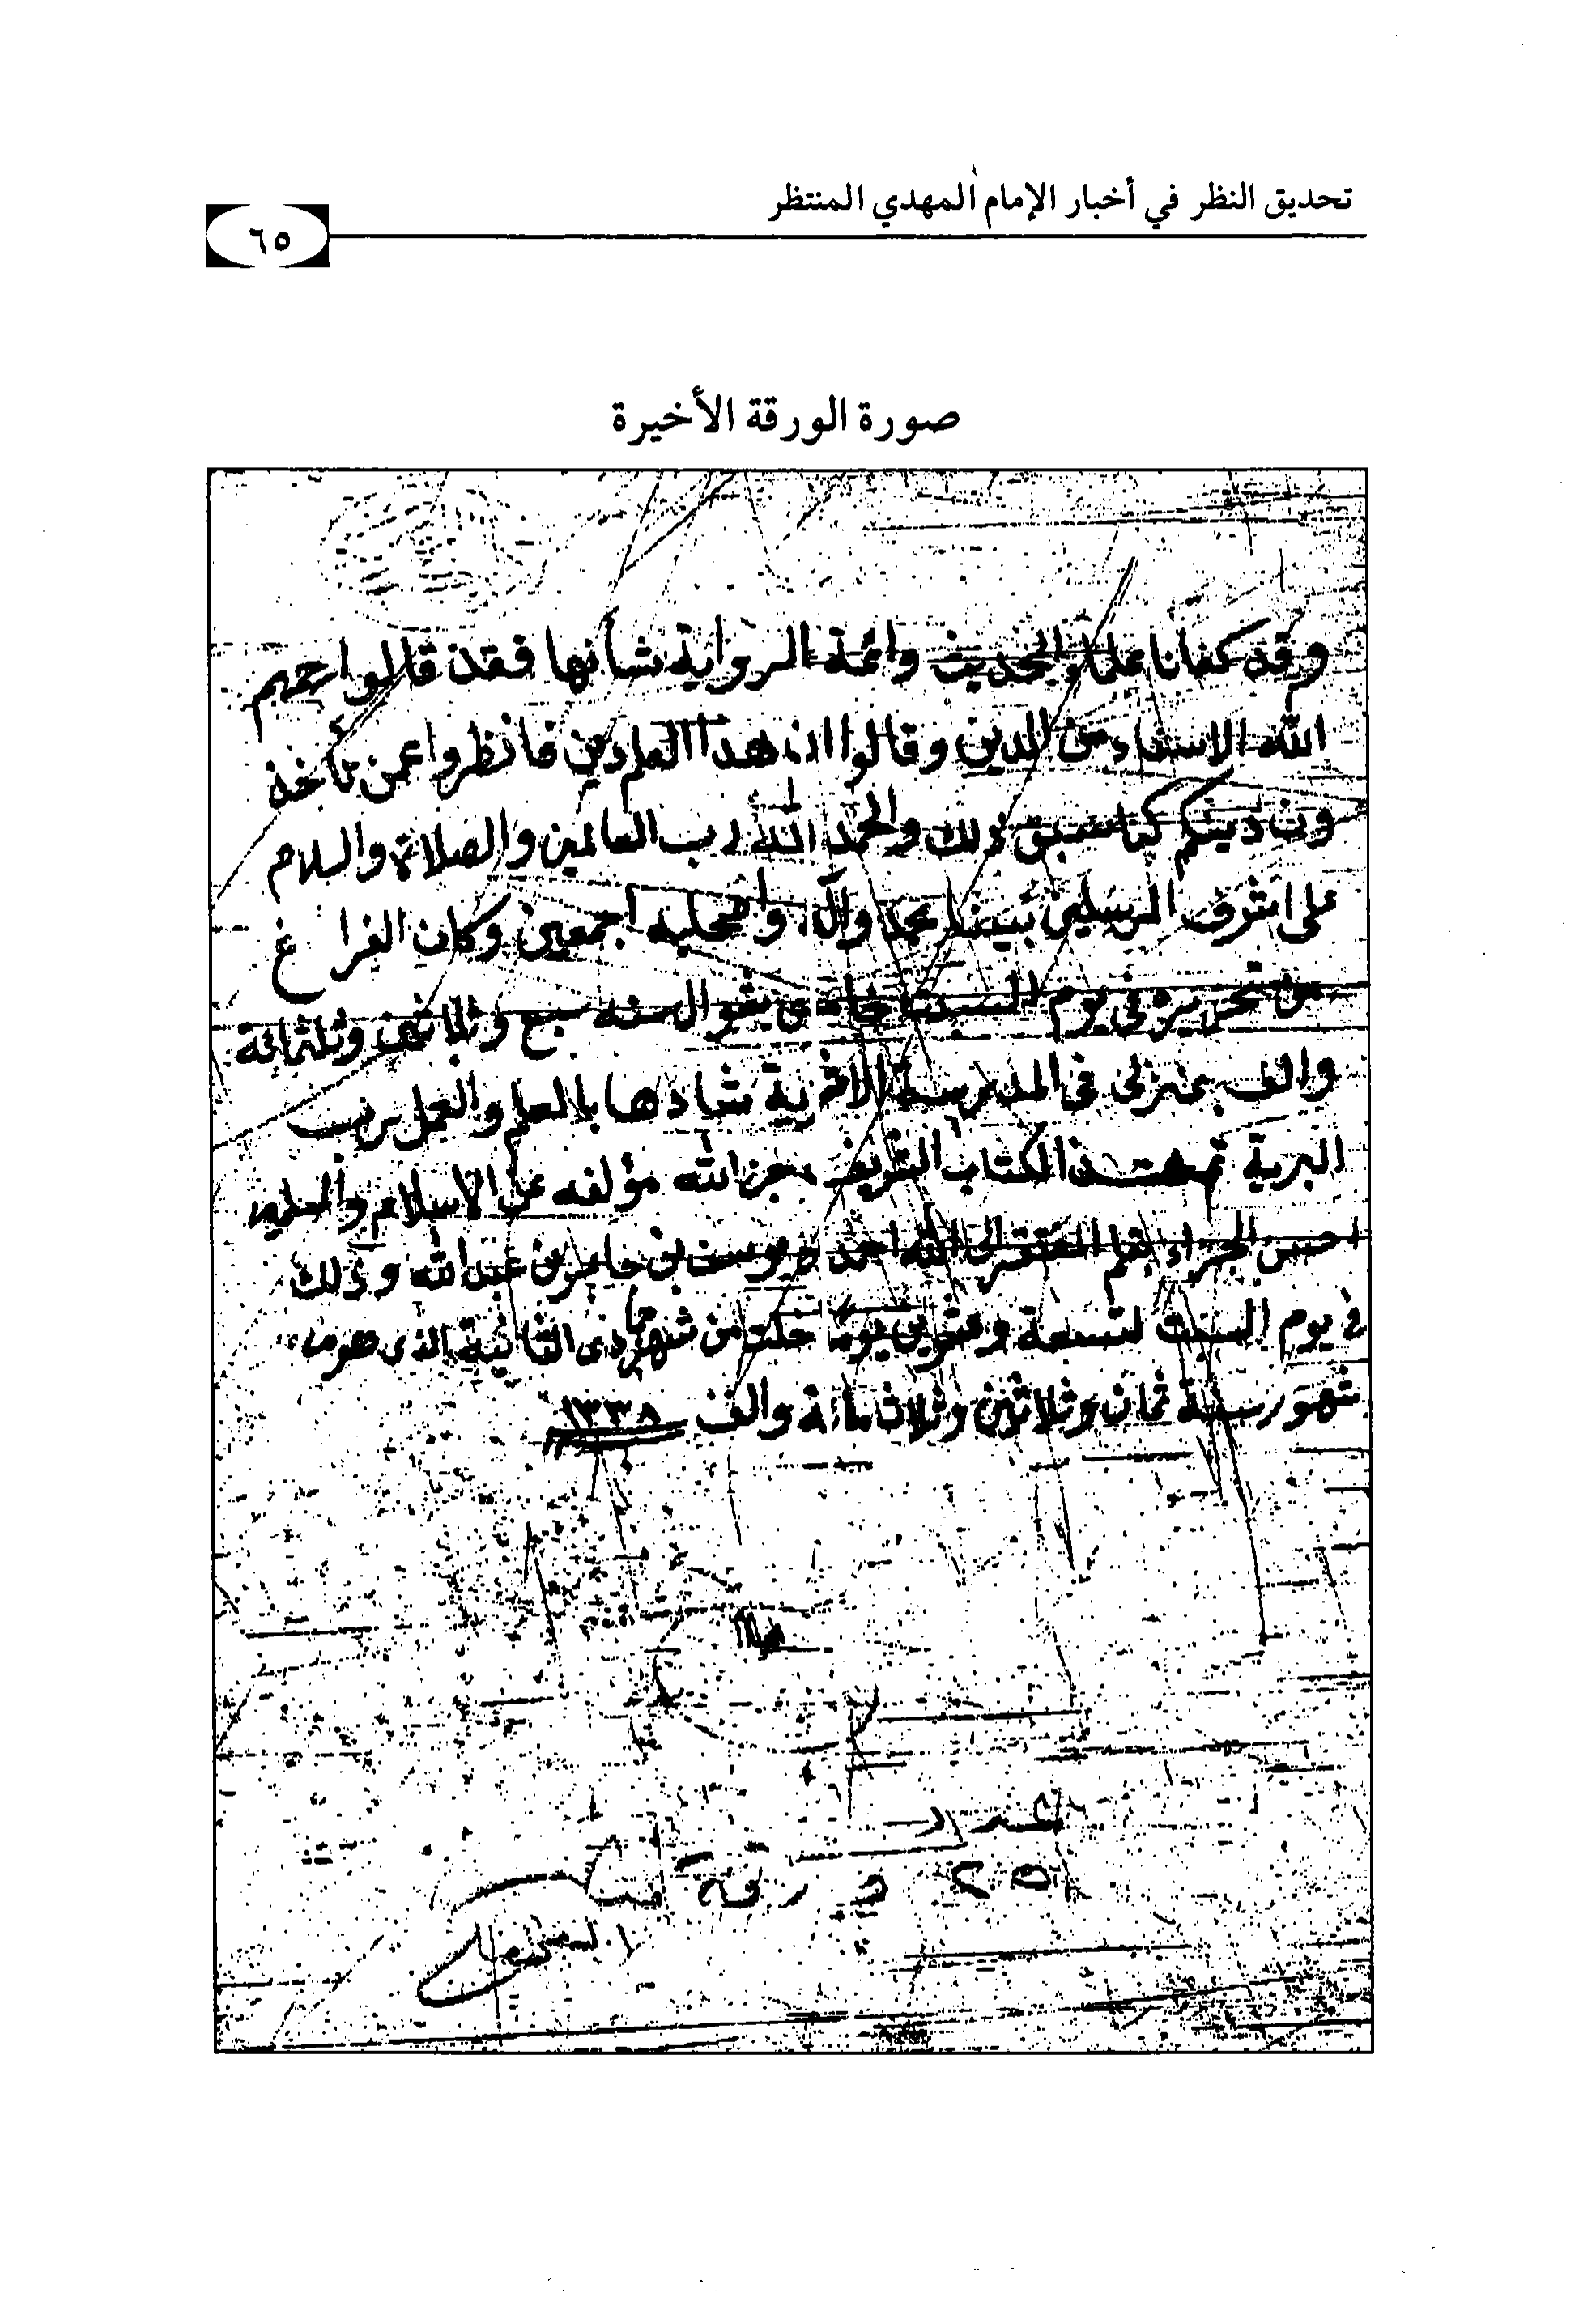 تحديق النظر في أخبار الإمام المهدي المنتظر
٦٥
صورة الورقة الأخيرة
وقد كفانا علماء الحديث وائمة الرواية شأنها فقد قالوا رحمهم
الله الاسناد من الدين وقالوا ان هذا العلم دين فانظروا عمن تأخذ
ون دينكم كما سبق ذلك والحمد لله رب العالمين والصلاة والسلام
على اشرف المرسلين نبينا محمد وآله واصحابه اجمعين وكان الفراغ
من تحريره في يوم السبت شوال سنة سبع وثلاثين وثلثمائة
والف بمنزلي في المدرسة الاثرية شادها بالعلم والعمل رب
البرية تم هذا الكتاب الشريف جزا الله مؤلفه عن الاسلام والعلم
احسن الجزاء بقلم المفتقر الى الله احمد بن يوسف بن جابر بن عبد الله وذلك
في يوم السبت لتسعة وعشرين يوما خلت من شهر جمادى الثانية الذي هو من
شهور سنة ثمان وثلاثين وثلاث مائة والف ١٣٣٨
ورقة